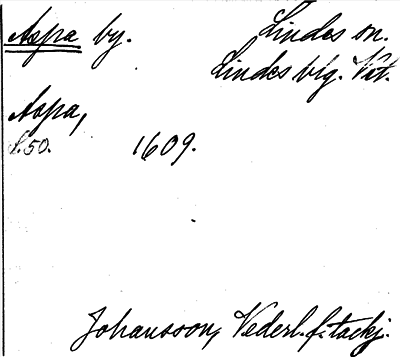 Aspa by. Lindes sn.
Lindes blg. Vst.
Aspa,
s. 50. 1609.
Johansson, Nederl. f. tackj.